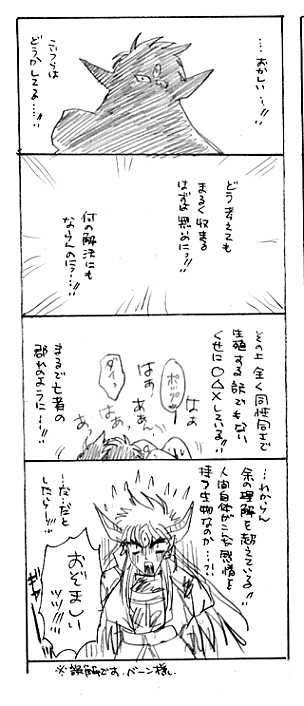 …おかしい…!!
こいつらは
どうかしてる…!!
どう考えても
まるく収まる
はずは無いのに?!!
何の解決にも
ならんのに?…!!
その上 全く同性同士で
生殖する訳でもない
くせに○△×している!!
ポップ…
はぁ
はぁ
あぁ
ダイ…
はぁ
あっ
まるで亡者の
群れのように…!!
…わからん
余の理解を超えている!!
人間自体がこんな感情を
持つ生物なのか…?!
…だ…だと
したら…!!
おぞましい
ッッ!!!
※誤解です、バーン様。